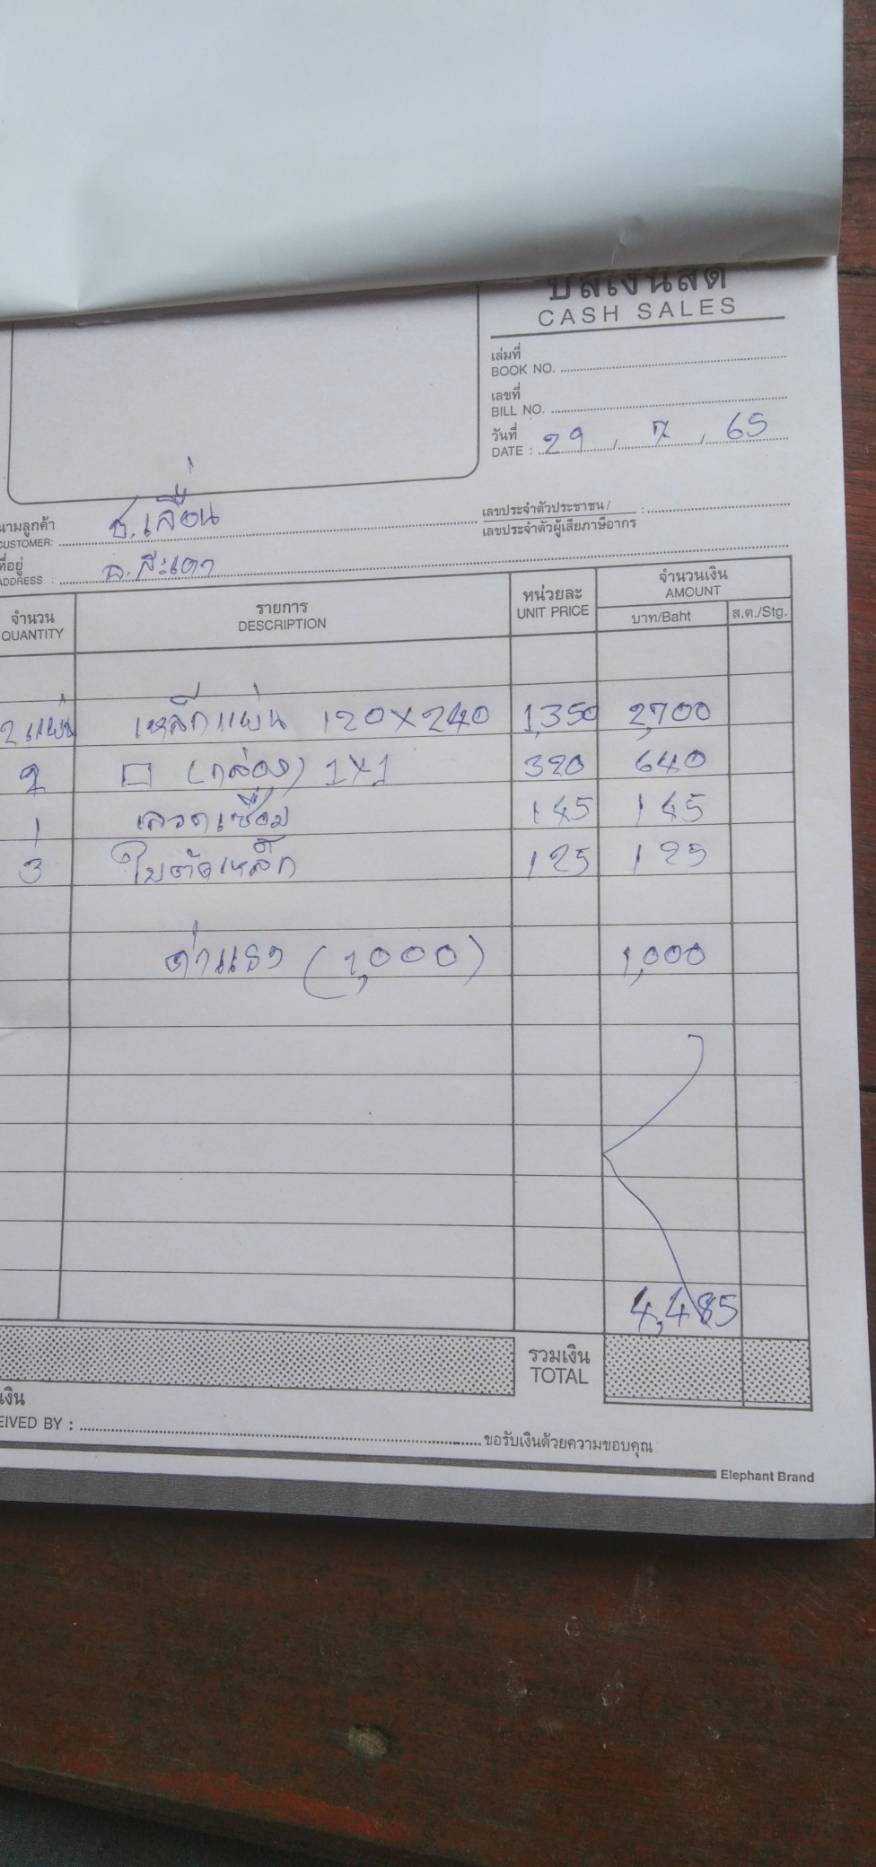 บิลเงินสด
CASH SALES
เล่มที่
BOOK NO.
เลขที่
BILL NO.
วันที่
DATE : 29 / 7 / 65
นามลูกค้า
CUSTOMER: ช.เลื่อน
เลขประจำตัวประชาชน/
เลขประจำตัวผู้เสียภาษีอากร :
ที่อยู่
ADDRESS : อ.สะเดา
จำนวน รายการ หน่วยละ จำนวนเงิน
QUANTITY DESCRIPTION UNIT PRICE AMOUNT
บาท/Baht ส.ต./Stg.
2 แผ่น เหล็กแผ่น 120×240 1,350 2,700
2 □ (กล่อง) 1×1 320 640
1 ลวดเชื่อม 145 145
3 ใบตัดเหล็ก 125 125
ค่าแรง (1,000) 1,000
4,485
รวมเงิน
TOTAL
เงิน
EIVED BY : ขอรับเงินด้วยความขอบคุณ
Elephant Brand